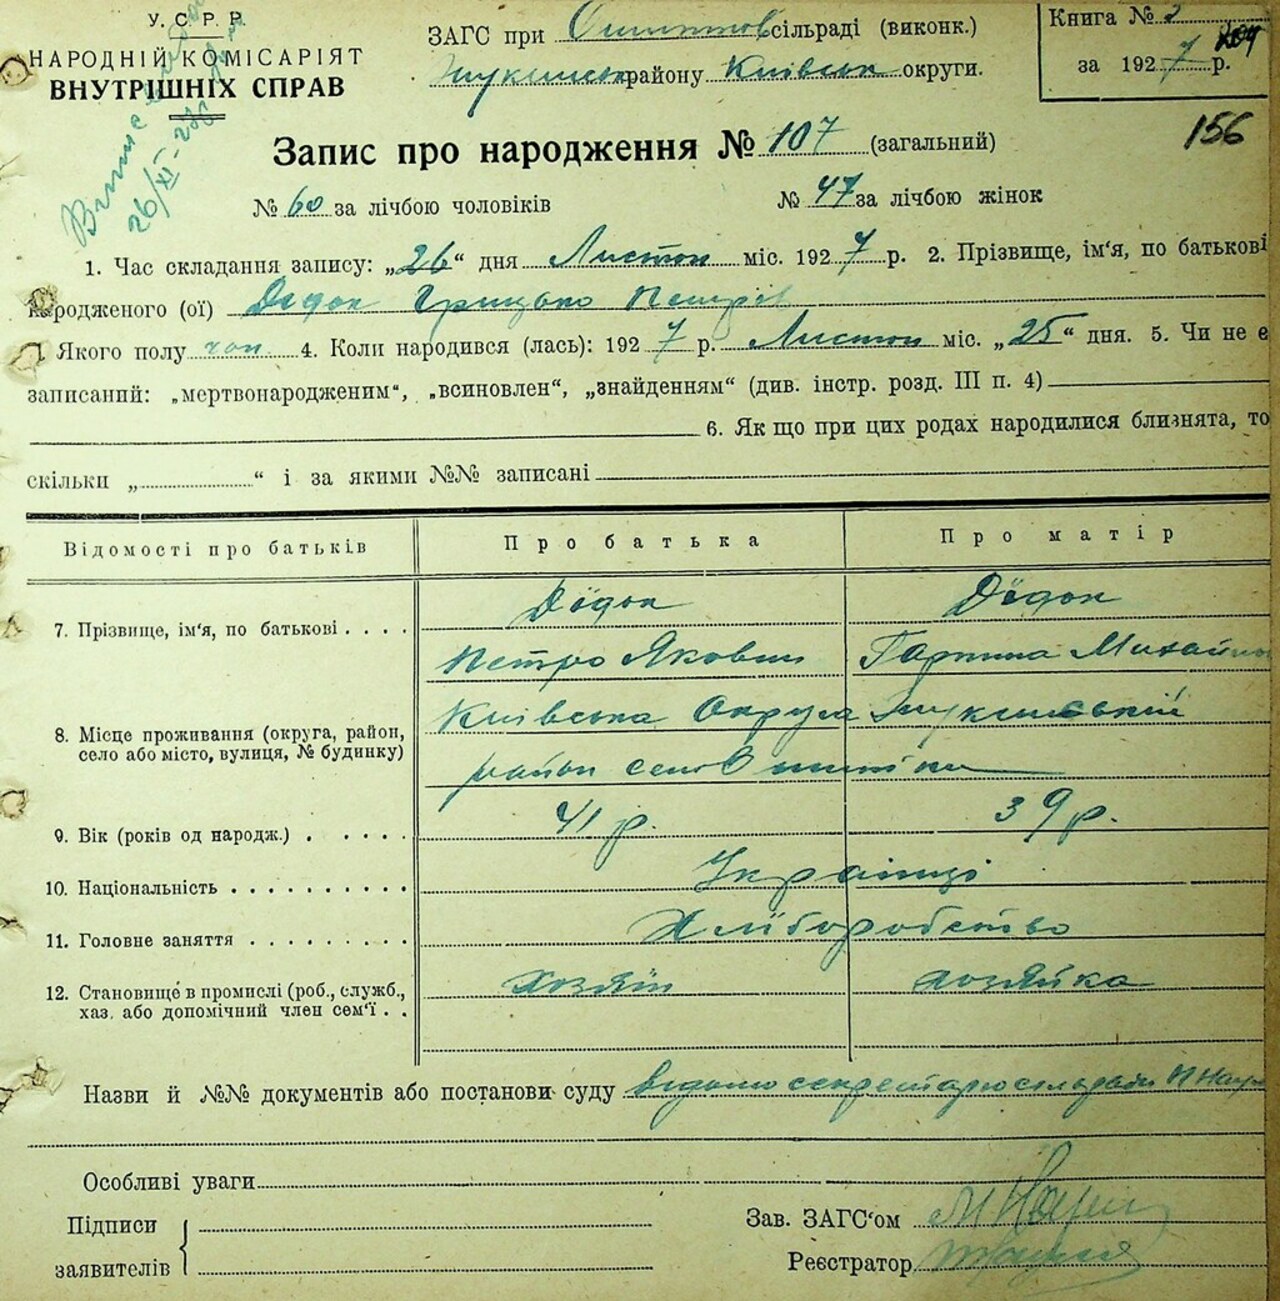 У. С. Р. Р.
НАРОДНІЙ КОМІСАРІЯТ
ВНУТРІШНІХ СПРАВ
ЗАГС при сільраді (виконк.)
району Київськ округи.
Книга № 2
за 1927 р.
156
26/XI-27
Запис про народження № 107 (загальний)
№ 60 за лічбою чоловіків № 47 за лічбою жінок
1. Час складання запису: „26“ дня Листоп міс. 1927 р. 2. Прізвище, ім‘я, по батькові
народженого (ої) Дідок Грицько Петрів
Якого полу чол. 4. Коли народився (лась): 1927 р. Листоп міс. „25“ дня. 5. Чи не є
записаний: „мертвонародженим“, „всиновлен“, „знайденням“ (див. інстр. розд. III п. 4)
6. Як що при цих родах народилися близнята, то
скільки „ “ і за якими №№ записані
Відомості про батьків Про батька Про матір
Дідок Дідок
7. Прізвище, ім‘я, по батькові . . . .
Петро Якович Михайл
8. Місце проживання (округа, район, село або місто, вулиця, № будинку)
Київська Округа
район село
9. Вік (років од народж.) . . . . . 41 р. 39 р.
10. Національність . . . . . . . . . . Українці
11. Головне заняття . . . . . . . . . Хліборобство
12. Становище в промислі (роб., служб., хаз. або допомічний член сем‘ї . . Хозяїн хозяйка
Назви й №№ документів або постанови суду відомо секретарю сельради
Особливі уваги
Підписи
заявителів
Зав. ЗАГС‘ом
Реєстратор